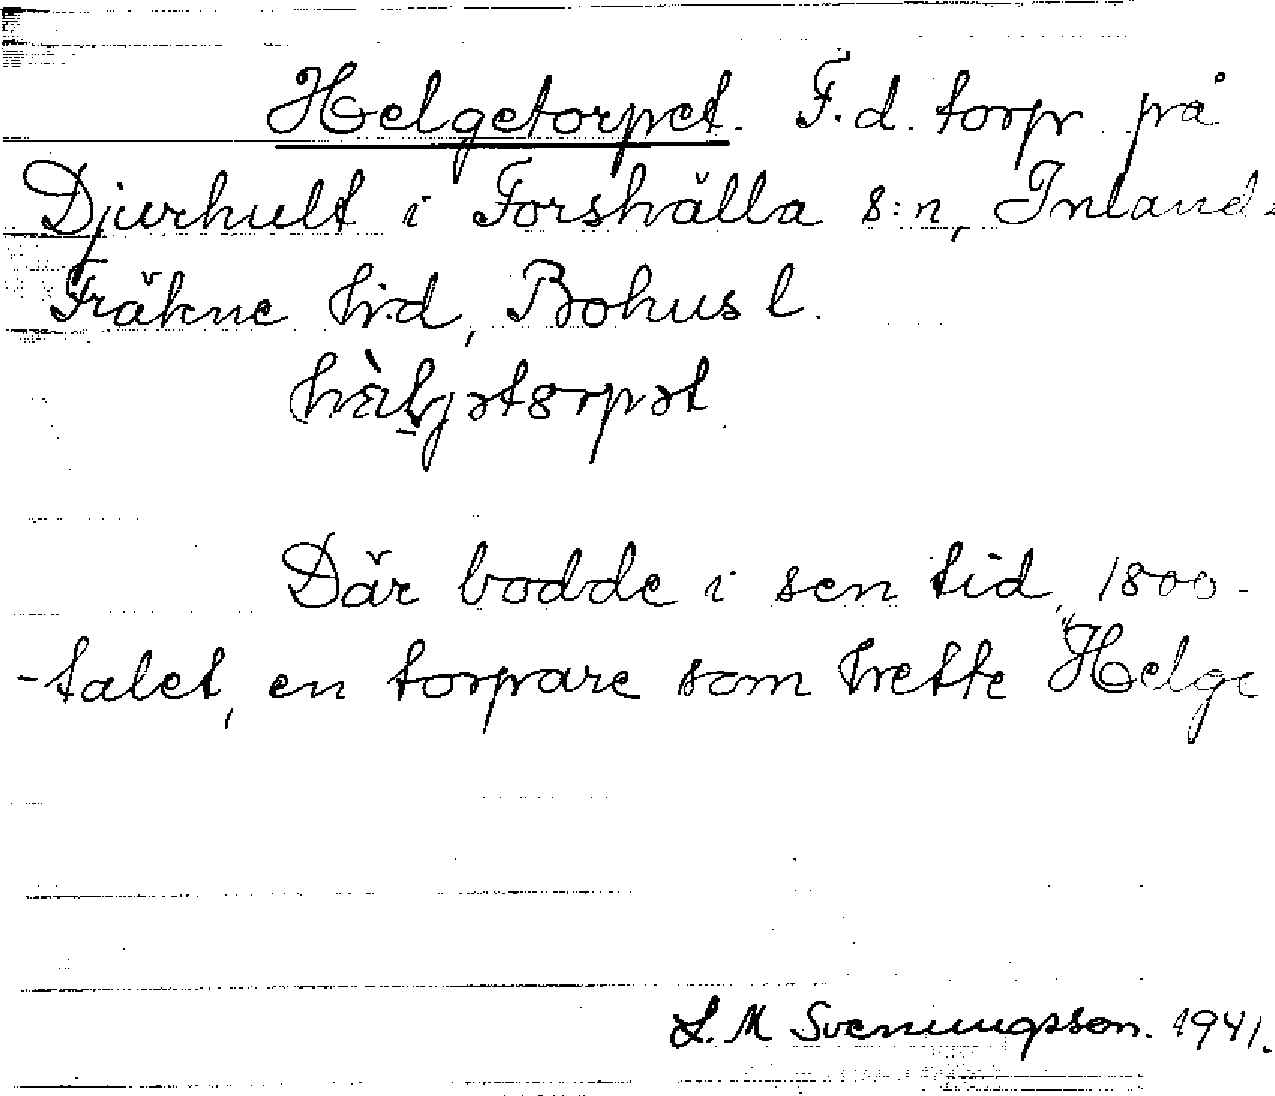 Helgetorpet. F.d. torp på
Djurhult i Forshälla s:n, Inlands
Fräkne hd, Bohusl.
Där bodde i sen tid, 1800-
-talet, en torpare som hette "Helge
S. M Svenungsson. 1941.